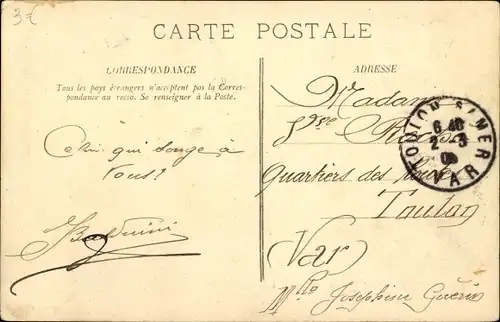 3€
CARTE POSTALE
CORRESPONDANCE
Tous les pays étrangers n'acceptent pas la Corres-
pondance au recto. Se renseigner à la Poste.
Celui qui songe à
Vous!
ADRESSE
Madame
Quartiers des
Toulon
Var
Mlle Josephine Guérin
TOULON S/MER
6 40
2 - 3
VAR